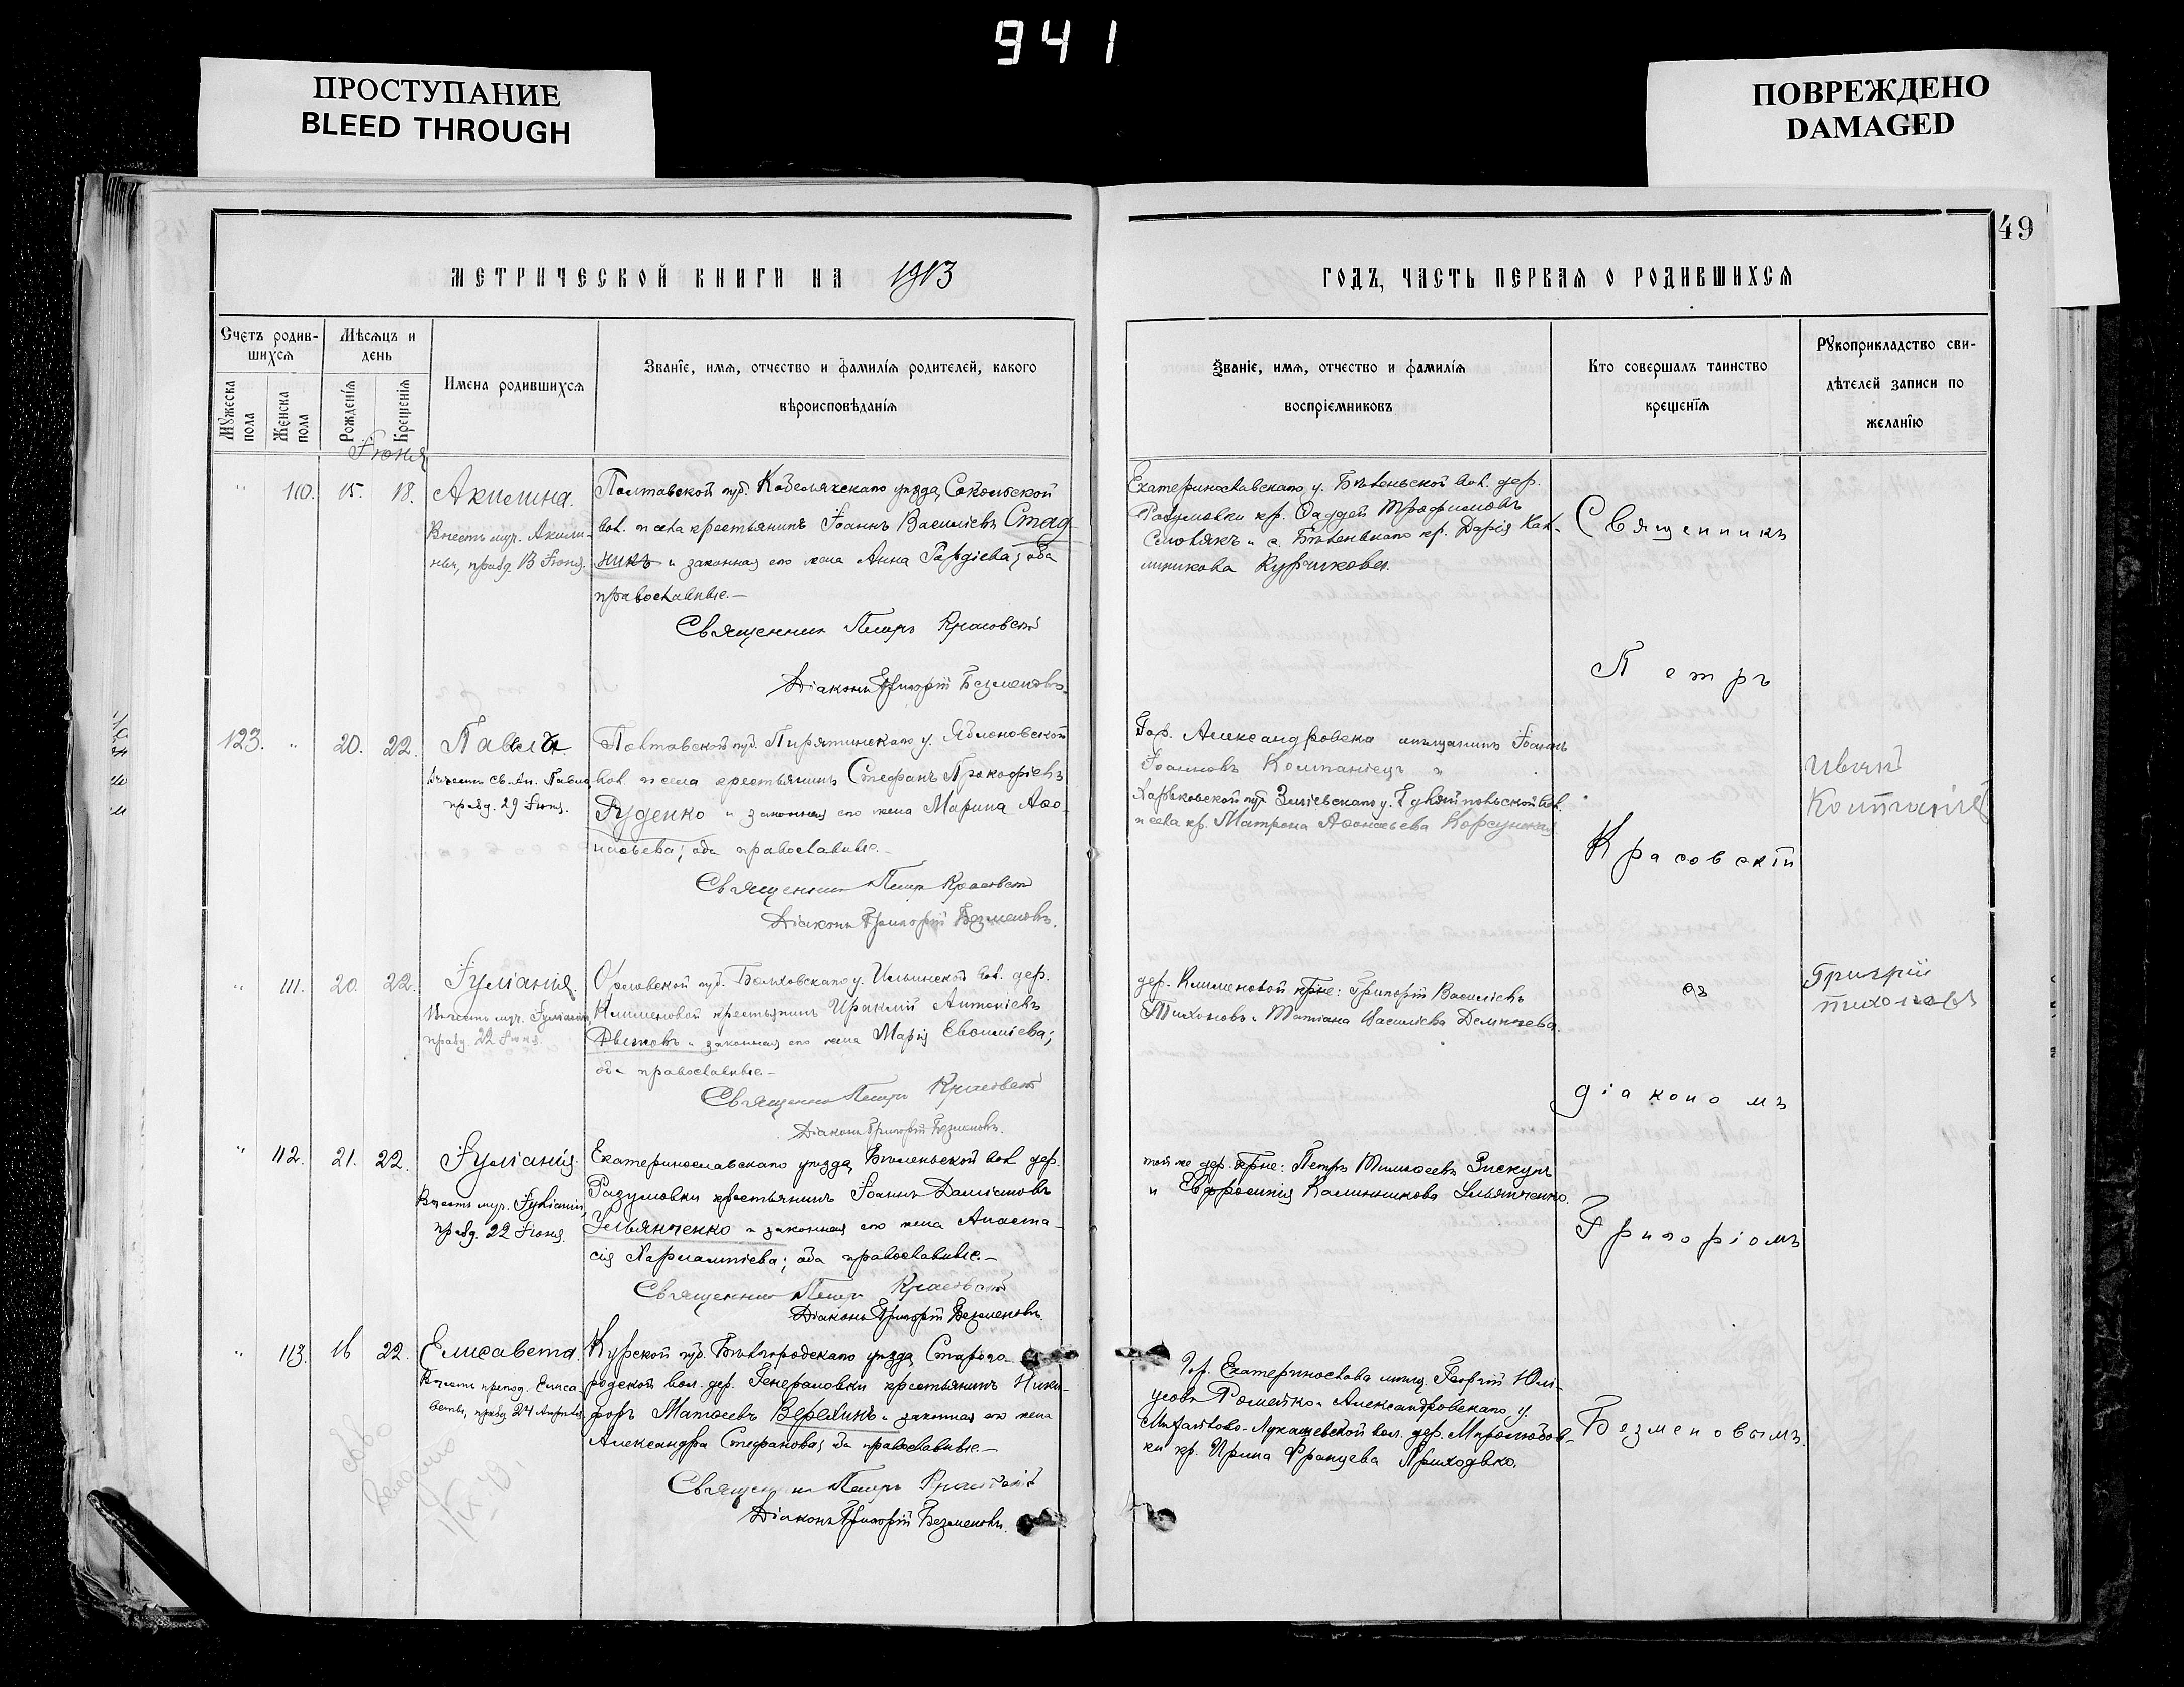 941
ПРОСТУПАНИЕ
BLEED THROUGH
ПОВРЕЖДЕНО
DAMAGED
49
МЕТРИЧЕСКОЙ КНИГИ НА 1913
ГОДЪ, ЧАСТЬ ПЕРВАЯ О РОДИВШИХСЯ
Счетъ родив-
шихся
Мужеска пола
Женска пола
Мѣсяцъ и
день
Рожденія
Крещенія
Имена родившихся
Званіе, имя, отчество и фамилія родителей, какого
вѣроисповѣданія
Званіе, имя, отчество и фамилія
воспріемниковъ
Кто совершалъ таинство
крещенія
Рукоприкладство сви-
дѣтелей записи по
желанію
Іюня
" 110. 15. 18. Акилина.
Въ честь муч. Акили-
ны, празд. 13 Іюня.
Полтавской губ. Кобелякскаго уѣзда, Сокольской
вол. и села крестьянинъ Іоаннъ Василіевъ Стад-
никъ и законная его жена Анна Гордіева; оба
православные.—
Священникъ Петръ Красовскій
Діаконъ Григорій Безменовъ.
Екатеринославскаго у. Бѣленьской вол. дер.
Разумовки кр. Фаддей Трофимовъ
и с. Бѣленькаго кр. Дарія Кал-
линикова
123. " 20. 22. Павелъ
Въ честь св. Ап. Павла
празд. 29 Іюня.
Полтавской губ. Пирятинскаго у. Яблоновской
вол. и села крестьянинъ Стефанъ Прокофіевъ
Руденко и законная его жена Марина Аѳа-
насьева; оба православные.—
Священникъ Петръ Красовскій
Діаконъ Григорій Безменовъ.
Гор. Александровска мѣщанинъ Іоаннъ
Іоанновъ Компаніецъ и
Харьковской губ. Зміевскаго у. вол.
и села кр. Матрона Аѳанасьева Корсунская
Иванъ
" 111. 20. 22. Іуліанія.
Въ честь муч. Іуліаніи,
празд. 22 Іюня.
Орловской губ. Болховскаго у. Ильинской вол. дер.
Клименовой крестьянинъ Ираклій Антоніевъ
и законная его жена Марія Евѳиміева;
оба православные.—
Священникъ Петръ Красовскій
Діаконъ Григорій Безменовъ.
дер. Клименовой крѣне: Григорій Василіевъ
Тихоновъ и Татіана Василіева Дементьева.
Григрій
тихонавъ
" 112. 21. 22. Іуліанія.
Въ честь муч. Іуліаніи,
празд. 22 Іюня.
Екатеринославскаго уѣзда, Бѣленьской вол. дер.
Разумовки крестьянинъ Іоаннъ Даміановъ
Ульянченко и законная его жена Анаста-
сія Харлампіева; оба православные.—
Священникъ Петръ Красовскій
Діаконъ Григорій Безменовъ.
той же дер. крѣне: Петръ Тимоѳеевъ
и Евфросинія Каллиникова Ульянченко.
" 113. 16 22. Елисавета.
Въ честь препод. Елиса-
веты, празд. 24 Апрѣля.
Курской губ. Бѣлгородскаго уѣзда, Старого-
родской вол. дер. Генераловки крестьянинъ Ники-
форъ Матѳеевъ Верехинъ и законная его жена
Александра Стефанова; оба православные.—
Священникъ Петръ Красовскій
Діаконъ Григорій Безменовъ.
Гор. Екатеринослава мѣщ. Георгій Юлі-
Александровскаго у.
Михайлово-Лукашевской вол. дер. Миролюбов-
ки кр. Ирина Францева Приходько.
Священникъ
Петръ
Красовскій
съ
діакономъ
Григоріомъ
Безменовымъ.